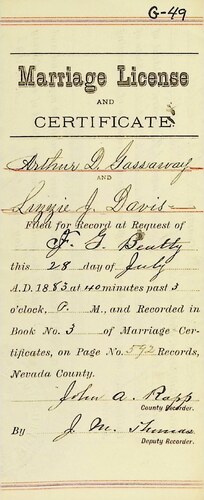 G-49
Marriage License
AND
CERTIFICATE.
Arthur D. Gassaway
AND
Linzie J. Davis
Filed for Record at Request of
F. G. Beatty
this 28 day of July
A.D. 1883 at 40 minutes past 3
o'clock, P. M., and Recorded in
Book No. 3 of Marriage Cer-
tificates, on Page No. 592 Records,
Nevada County.
John A. Rapp
County Recorder.
By J. M. Thomas
Deputy Recorder.